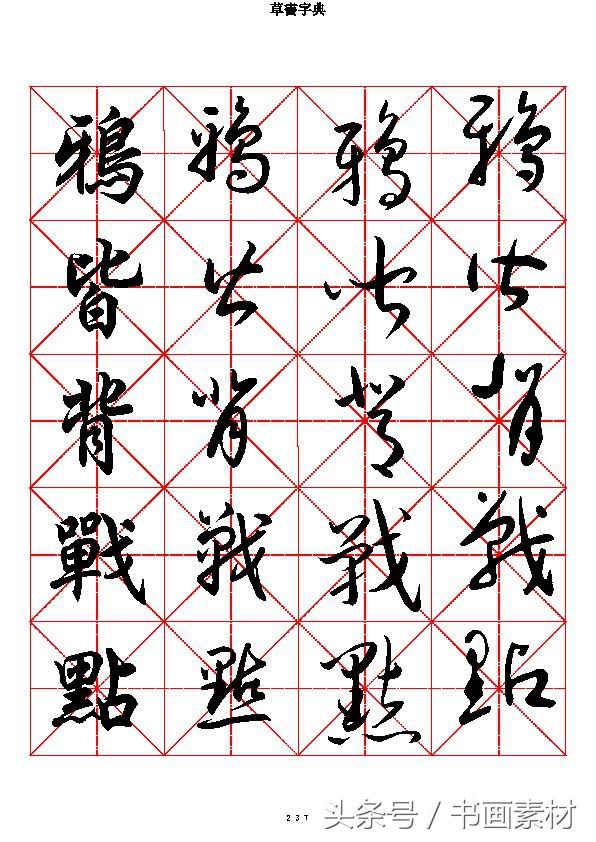 草書字典
鴉 鴉 鴉 鴉
皆 皆 皆 皆
背 背 背 背
戰 戰 戰 戰
點 點 點 點
237
头条号 / 书画素材